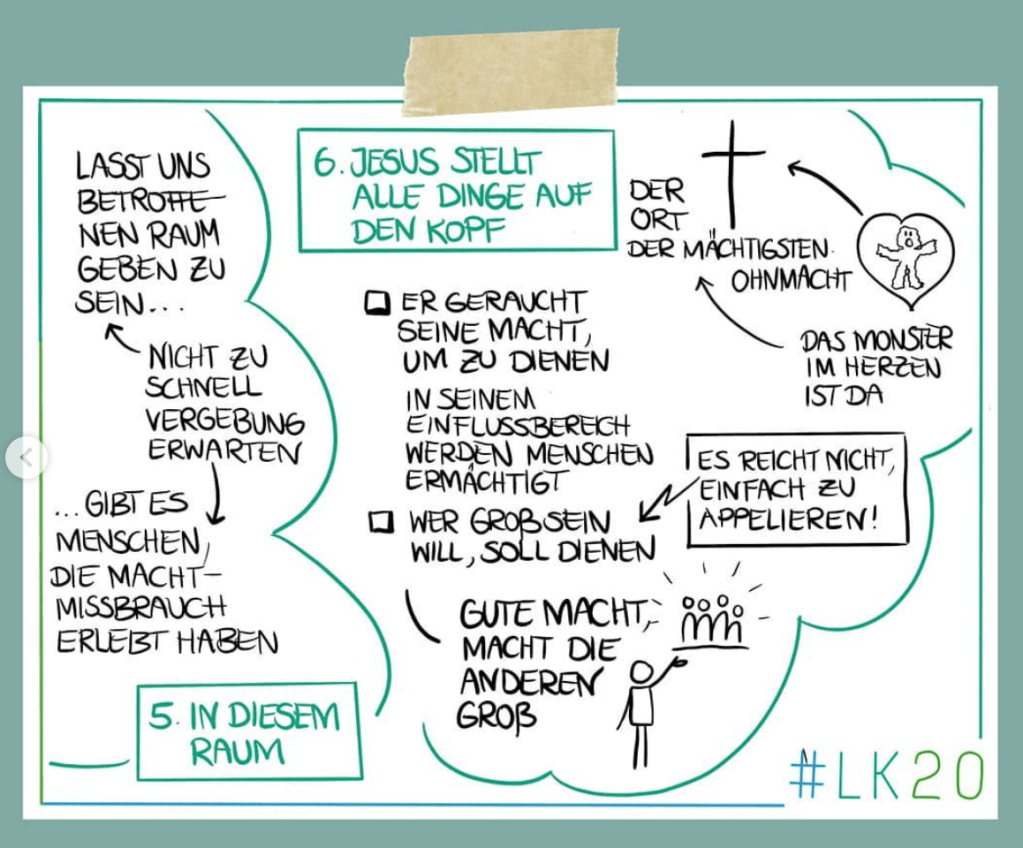 LASST UNS
BETROFFE-
NEN RAUM
GEBEN ZU
SEIN...
NICHT ZU
SCHNELL
VERGEBUNG
ERWARTEN
...GIBT ES
MENSCHEN,
DIE MACHT-
MISSBRAUCH
ERLEBT HABEN
5. IN DIESEM
RAUM
6. JESUS STELLT
ALLE DINGE AUF
DEN KOPF
ER GERAUCHT
SEINE MACHT,
UM ZU DIENEN
IN SEINEM
EINFLUSSBEREICH
WERDEN MENSCHEN
ERMÄCHTIGT
WER GROß SEIN
WILL, SOLL DIENEN
GUTE MACHT,
MACHT DIE
ANDEREN
GROß
DER
ORT
DER MÄCHTIGSTEN
OHNMACHT
DAS MONSTER
IM HERZEN
IST DA
ES REICHT NICHT,
EINFACH ZU
APPELIEREN!
#LK20